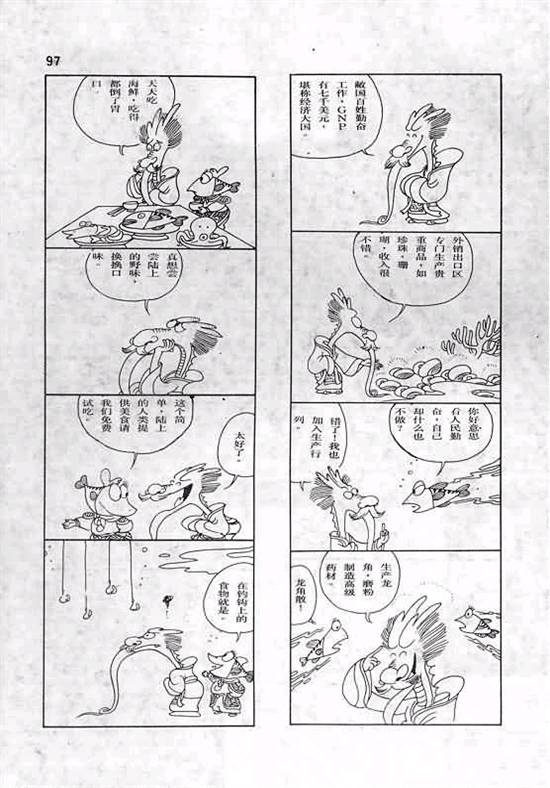 97
敝国百姓勤奋
工作，GNP
有七千美元，
堪称经济大国。
外销出口区
专门生产贵
重商品，如
珍珠、珊
瑚，收入很
不错。
你好意思
看人民勤
奋，自己
却什么也
不做？
错了！我也
加入生产行
列。
生产龙
角，磨粉
制造高级
药材。
龙角散！
天天吃
海鲜，吃得
都倒了胃
口。
真想尝
尝陆上
的野味，
换换口
味。
太好了。
这个简
单，陆上
的人类提
供美食请
我们免费
试吃。
在钓钩上的
食物就是。